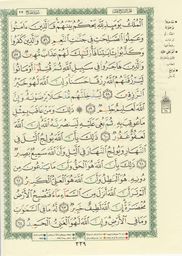 ٱلْمُلْكُ يَوْمَئِذٍ لِّلَّهِ يَحْكُمُ بَيْنَهُمْ فَٱلَّذِينَ ءَامَنُوا۟
وَعَمِلُوا۟ ٱلصَّٰلِحَٰتِ فِى جَنَّٰتِ ٱلنَّعِيمِ ٥٦ وَٱلَّذِينَ كَفَرُوا۟
وَكَذَّبُوا۟ بِـَٔايَٰتِنَا فَأُو۟لَٰٓئِكَ لَهُمْ عَذَابٌ مُّهِينٌ ٥٧
وَٱلَّذِينَ هَاجَرُوا۟ فِى سَبِيلِ ٱللَّهِ ثُمَّ قُتِلُوٓا۟ أَوْ مَاتُوا۟
لَيَرْزُقَنَّهُمُ ٱللَّهُ رِزْقًا حَسَنًا وَإِنَّ ٱللَّهَ لَهُوَ خَيْرُ
ٱلرَّٰزِقِينَ ٥٨ لَيُدْخِلَنَّهُم مُّدْخَلًا يَرْضَوْنَهُۥ وَإِنَّ
ٱللَّهَ لَعَلِيمٌ حَلِيمٌ ٥٩ ذَٰلِكَ وَمَنْ عَاقَبَ بِمِثْلِ مَا
عُوقِبَ بِهِۦ ثُمَّ بُغِىَ عَلَيْهِ لَيَنصُرَنَّهُ ٱللَّهُ إِنَّ ٱللَّهَ لَعَفُوٌّ
غَفُورٌ ٦٠ ذَٰلِكَ بِأَنَّ ٱللَّهَ يُولِجُ ٱلَّيْلَ فِى
ٱلنَّهَارِ وَيُولِجُ ٱلنَّهَارَ فِى ٱلَّيْلِ وَأَنَّ ٱللَّهَ سَمِيعٌۢ بَصِيرٌ
٦١ ذَٰلِكَ بِأَنَّ ٱللَّهَ هُوَ ٱلْحَقُّ وَأَنَّ مَا يَدْعُونَ مِن
دُونِهِۦ هُوَ ٱلْبَٰطِلُ وَأَنَّ ٱللَّهَ هُوَ ٱلْعَلِىُّ ٱلْكَبِيرُ ٦٢
أَلَمْ تَرَ أَنَّ ٱللَّهَ أَنزَلَ مِنَ ٱلسَّمَآءِ مَآءً فَتُصْبِحُ ٱلْأَرْضُ
مُخْضَرَّةً إِنَّ ٱللَّهَ لَطِيفٌ خَبِيرٌ ٦٣ لَّهُۥ مَا فِى ٱلسَّمَٰوَٰتِ
وَمَا فِى ٱلْأَرْضِ وَإِنَّ ٱللَّهَ لَهُوَ ٱلْغَنِىُّ ٱلْحَمِيدُ ٦٤
٣٣٩